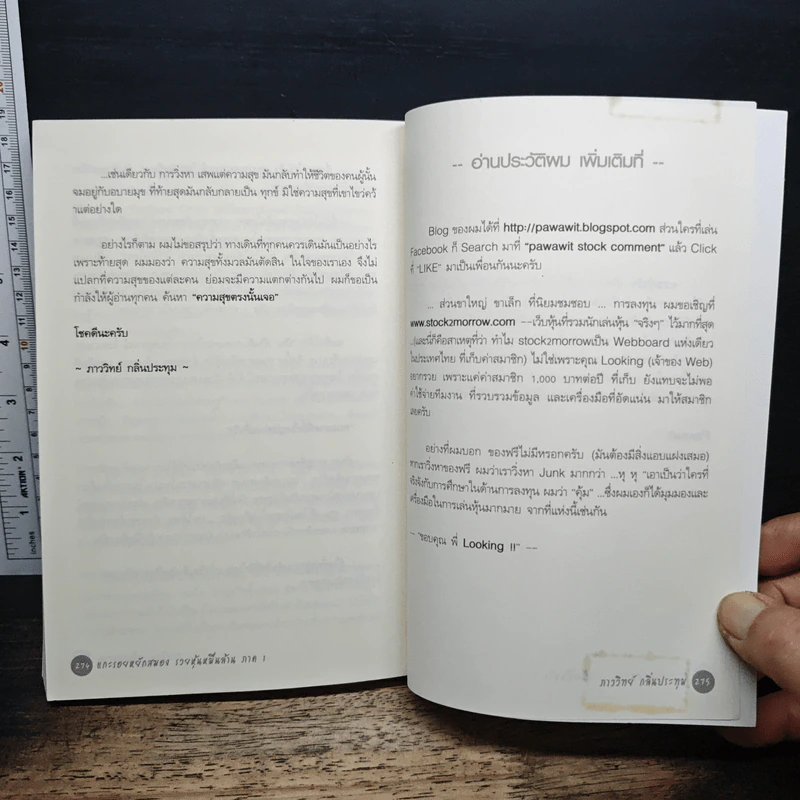 ...เช่นเดียวกับ การวิ่งหา เสพแต่ความสุข มันกลับทำให้ชีวิตของคนผู้นั้น
จมอยู่กับอบายมุข ที่ท้ายสุดมันกลับกลายเป็น ทุกข์ มิใช่ความสุขที่เขาไขว่คว้
าแต่อย่างใด
อย่างไรก็ตาม ผมไม่ขอสรุปว่า ทางเดินที่ทุกคนควรเดินมันเป็นอย่างไร
เพราะท้ายสุด ผมมองว่า ความสุขทั้งมวลมันตัดสิน ในใจของเราเอง จึงไม่
แปลกที่ความสุขของแต่ละคน ย่อมจะมีความแตกต่างกันไป ผมก็ขอเป็น
กำลังให้ผู้อ่านทุกคน ค้นหา "ความสุขตรงนั้นเจอ"
โชคดีนะครับ
~ ภาววิทย์ กลิ่นประทุม ~
274 แกะรอยหยักสมอง รวยหุ้นหมื่นล้าน ภาค 1
-- อ่านประวัติผม เพิ่มเติมที่ --
Blog ของผมได้ที่ http://pawawit.blogspot.com ส่วนใครที่เล่น
Facebook ก็ Search มาที่ "pawawit stock comment" แล้ว Click
ที่ "LIKE" มาเป็นเพื่อนกันนะครับ
... ส่วนขาใหญ่ ขาเล็ก ที่นิยมชมชอบ ... การลงทุน ผมขอเชิญที่
www.stock2morrow.com --เว็บหุ้นที่รวมนักเล่นหุ้น "จริงๆ" ไว้มากที่สุด
..(และนี่ก็คือสาเหตุที่ว่า ทำไม stock2morrowเป็น Webboard แห่งเดียว
ในประเทศไทย ที่เก็บค่าสมาชิก) ไม่ใช่เพราะคุณ Looking (เจ้าของ Web)
อยากรวย เพราะแค่ค่าสมาชิก 1,000 บาทต่อปี ที่เก็บ ยังแทบจะไม่พอ
ค่าใช้จ่ายทีมงาน ที่รวบรวมข้อมูล และเครื่องมือที่อัดแน่น มาให้สมาชิก
เลยครับ
อย่างที่ผมบอก ของฟรีไม่มีหรอกครับ (มันต้องมีสิ่งแอบแฝงเสมอ)
หากเราวิ่งหาของฟรี ผมว่าเราวิ่งหา Junk มากกว่า ...หุ หุ "เอาเป็นว่าใครที่
จริงจังกับการศึกษาในด้านการลงทุน ผมว่า "คุ้ม" ...ซึ่งผมเองก็ได้มุมมองและ
เครื่องมือในการเล่นหุ้นมากมาย จากที่แห่งนี้เช่นกัน
-- "ขอบคุณ พี่ Looking !!" --
ภาววิทย์ กลิ่นประทุม 275
inches